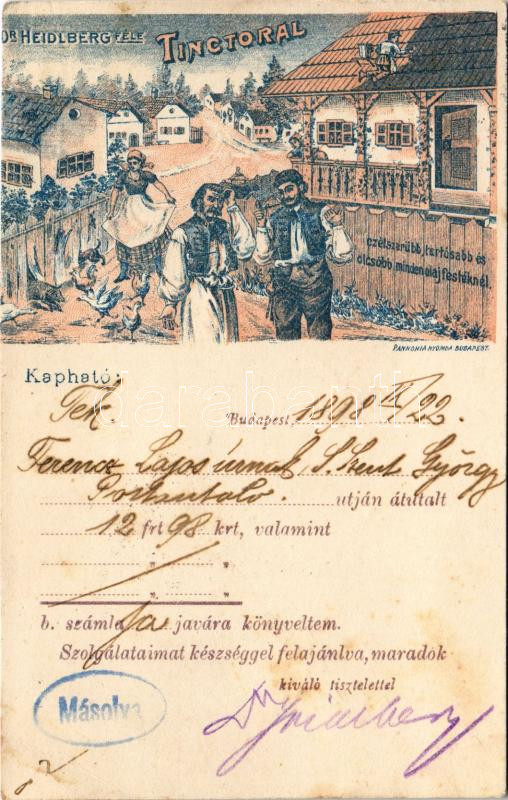 DR HEIDLBERG FÉLE TINCTORAL
czélszerübb, tartósabb és
olcsóbb minden olaj festéknél.
PANNONIA NYOMDA BUDAPEST.
Kapható:
Tek.
Budapest, 1898 22.
Ferencz Lajos úrnak, S. Szent György
utján átutalt
12 frt 98 krt, valamint
" "
" "
b. számla javára könyveltem.
Szolgálataimat készséggel felajánlva, maradok
kiváló tisztelettel
Másolva
Dr Heidlberg
darabanth